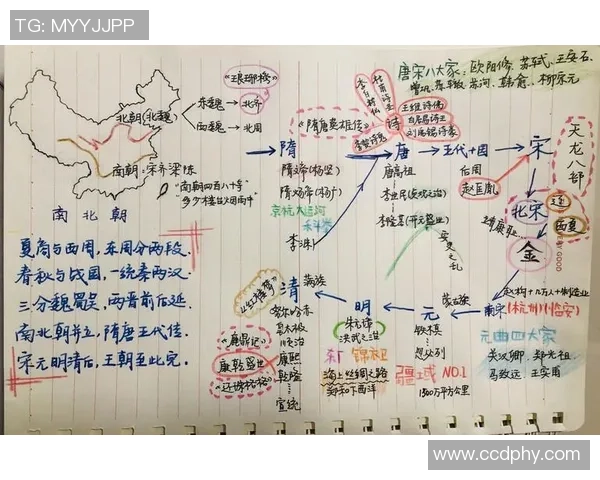 TG: MYYJJPP
唐宋八大家：欧阳修、苏轼、王安石、
曾巩、苏辙、苏洵、韩愈、柳宗元
《琅琊榜》
北朝(北魏)
东魏 → 北齐
西魏 → 北周
南朝：宋齐梁陈
"南朝四百八十寺
多少楼台烟雨中"
南北朝
夏商与西周，东周分两段，
春秋与战国，一统秦两汉，
三分魏蜀吴，两晋前后延，
南北朝并立，隋唐五代传，
宋元明清后，王朝至此完。
《隋唐英雄传》
诗
王维诗佛
白居易诗王
刘禹锡诗豪
隋
隋文帝(杨坚)
隋炀帝(杨广)
京杭大运河
科举
李渊
唐
唐高祖
李世民(贞观之治)
李隆基(开元盛世)
安史之乱
五代十国
后周
赵匡胤
宋
天龙八部
北宋
辽
西夏
靖康耻
金
南宋(杭州)(临安)
元曲四大家
关汉卿、郑光祖、
马致远、王实甫
元
蒙古族
铁木真
忽必烈
疆域 NO.1
1500万平方公里
明
朱元璋
洪武之治
东厂 锦衣卫
海上丝绸之路
郑和下西洋
清
满族
努尔哈赤
皇太极
顺治
康熙
乾隆
宣统
《鹿鼎记》
康乾盛世
《还珠格格》
www.ccdphy.com